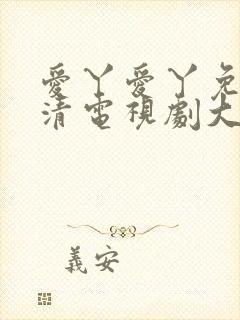 愛丫愛丫免
清電視劇大
義安